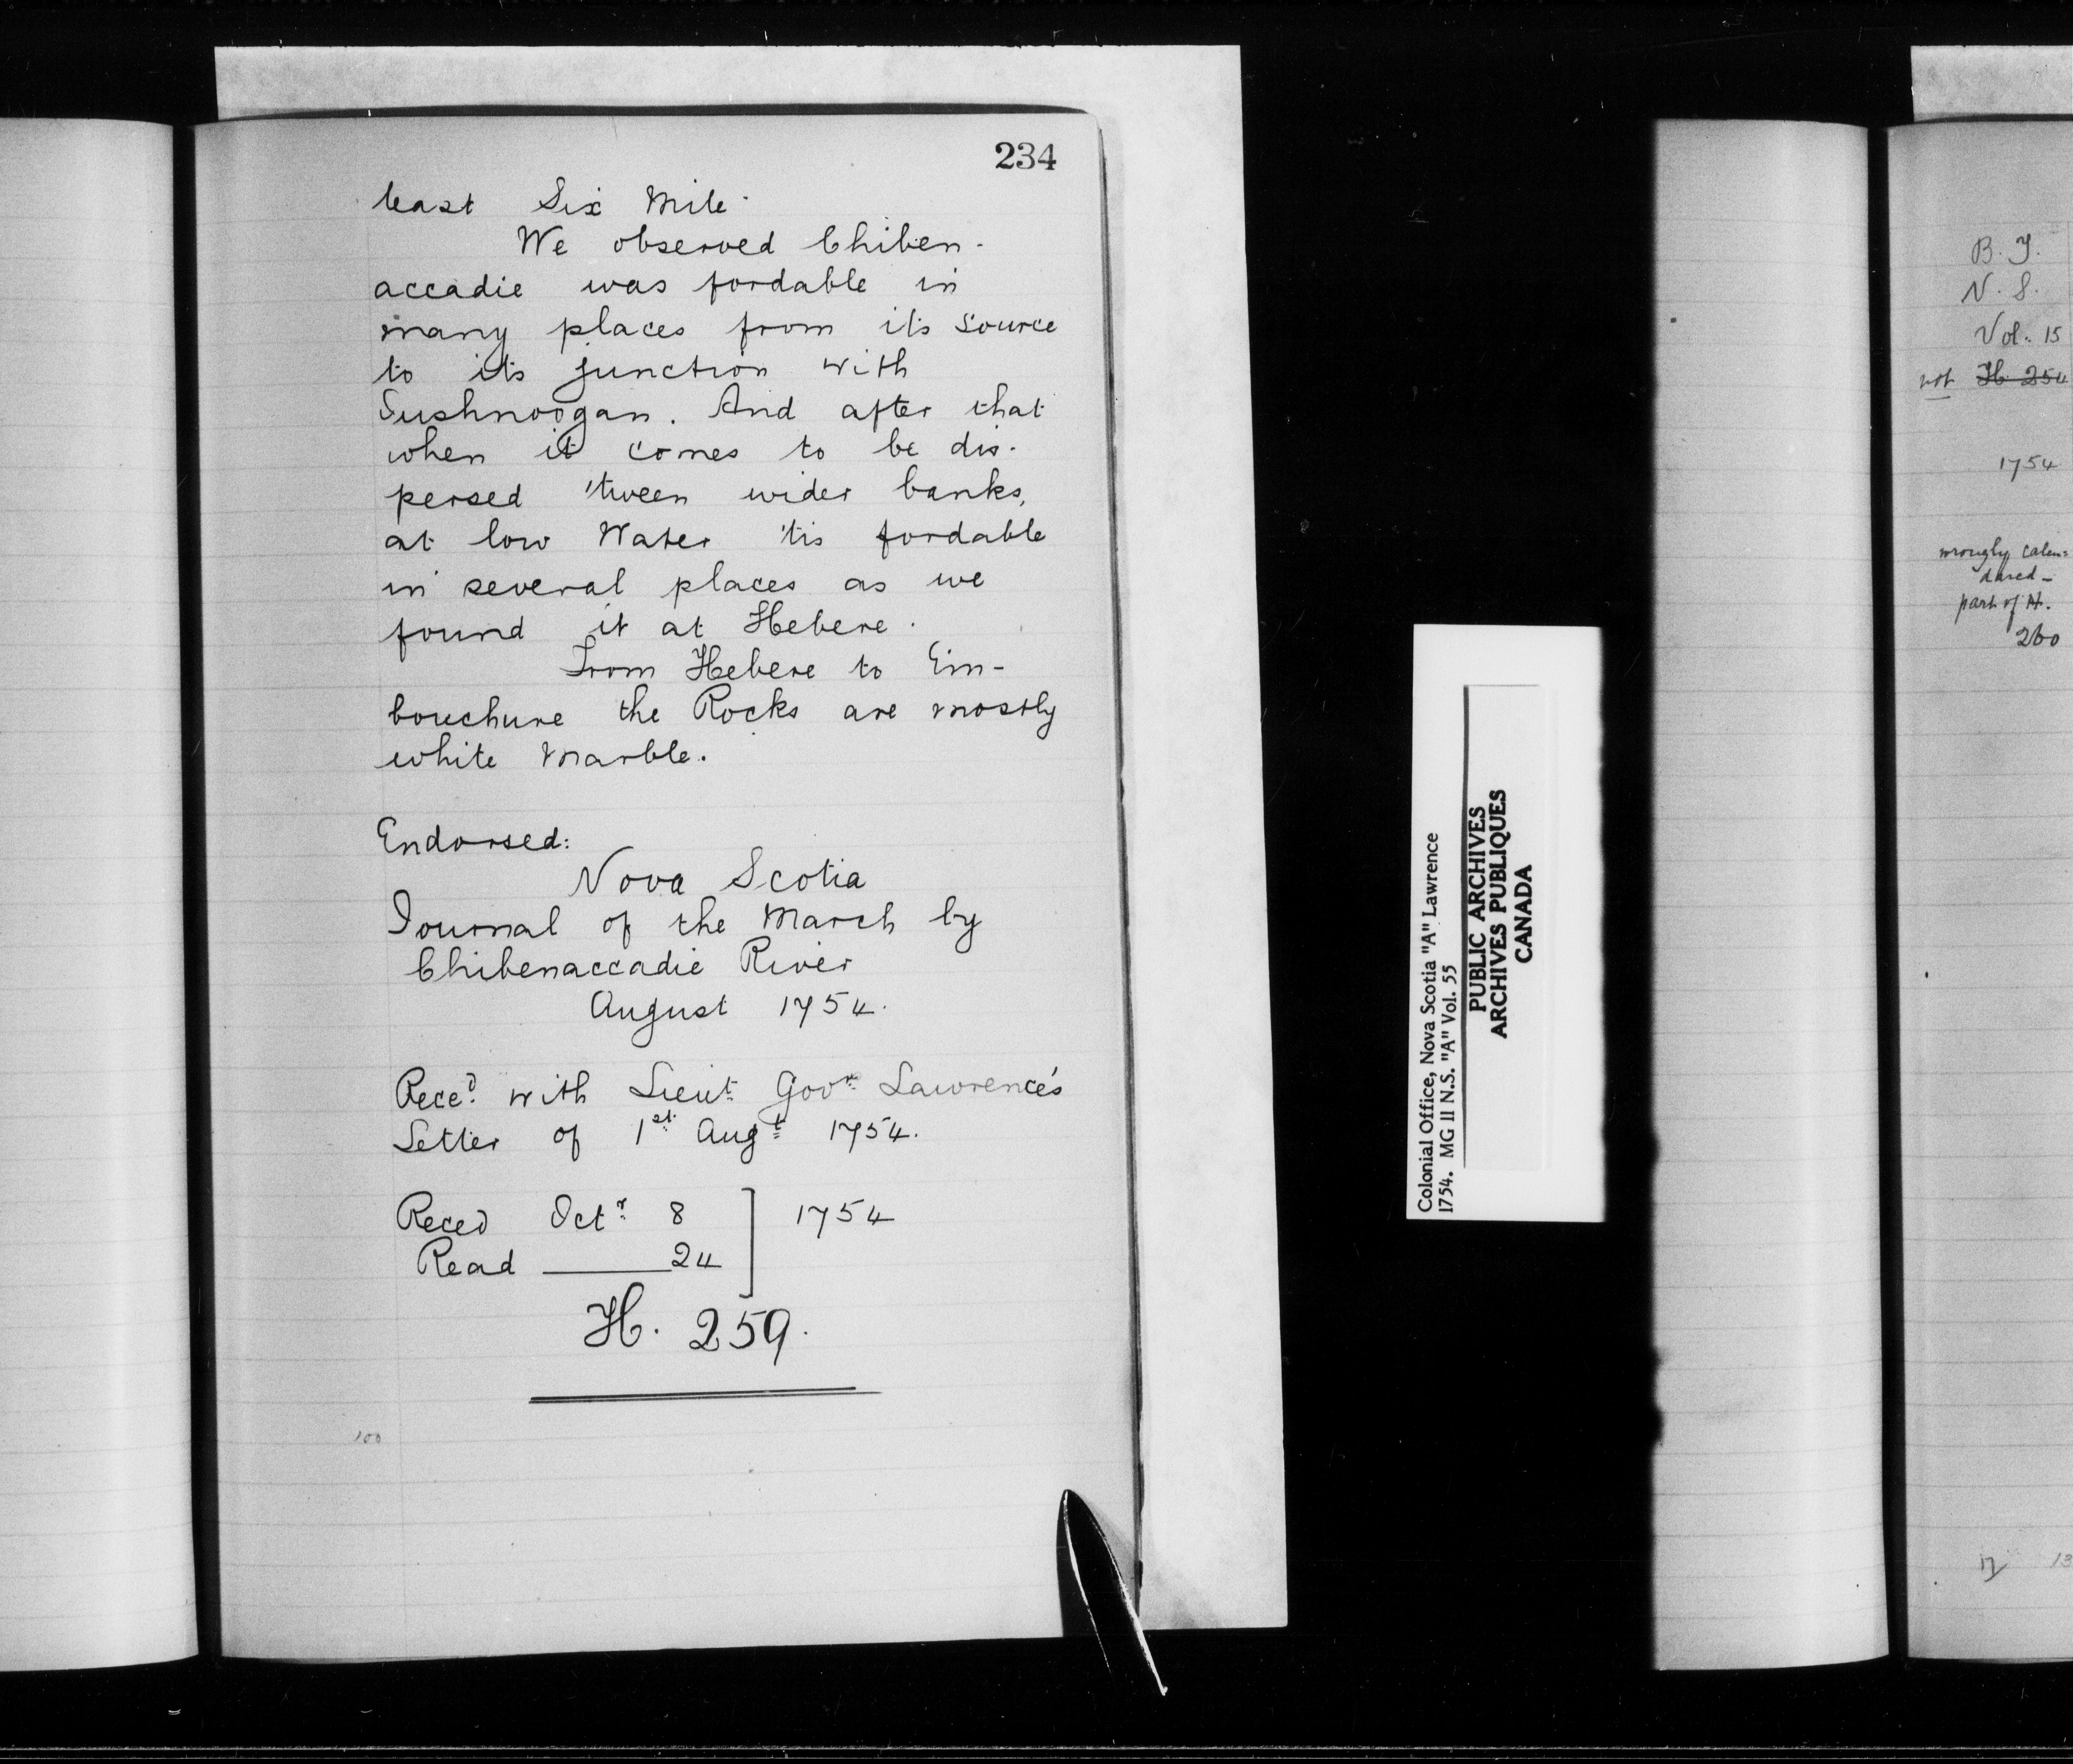 234
least Six Mile.
We observed Chiben-
accadie was fordable in
many places from its source
to its junction with
Sushnoogan. And after that
when it comes to be dis-
persed 'tween wider banks,
at low Water 'tis fordable
in several places as we
found it at Hebere.
From Hebere to Em-
bouchure the Rocks are mostly
white Marble.
Endorsed:
Nova Scotia
Journal of the March by
Chibenaccadie River
August 1754.
Rece.d with Lieut. Govr. Lawrence's
Letter of 1st. Augt. 1754.
Reced Octr. 8 ] 1754
Read ——— 24
H. 259.
100
Colonial Office, Nova Scotia "A" Lawrence
1754. MG II N.S. "A" Vol. 55
PUBLIC ARCHIVES
ARCHIVES PUBLIQUES
CANADA
B. T.
N. S.
Vol. 15
not H. 254
1754
wrongly calen=
dared -
part of H.
260